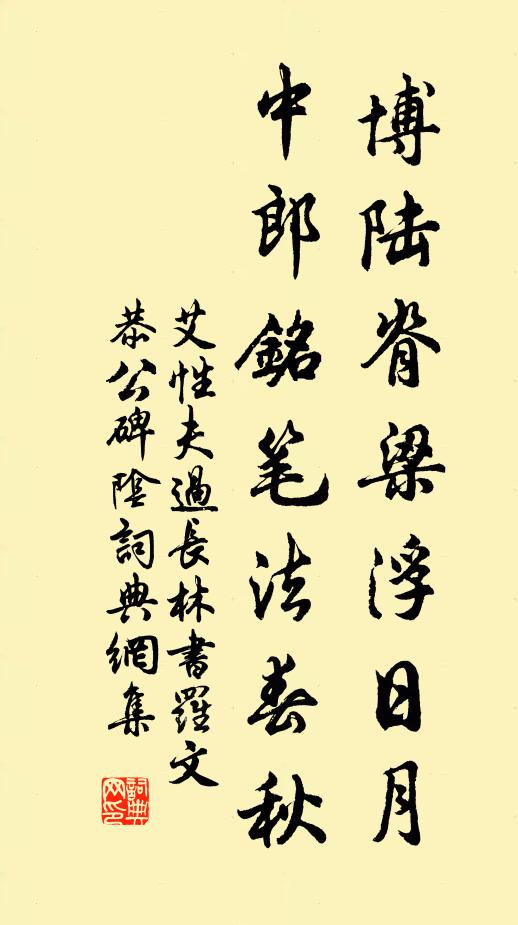 博陆脊梁浮日月
中郎銘笔法春秋
艾性夫過長林書羅文
恭公碑陰詞典網集
詞典網印